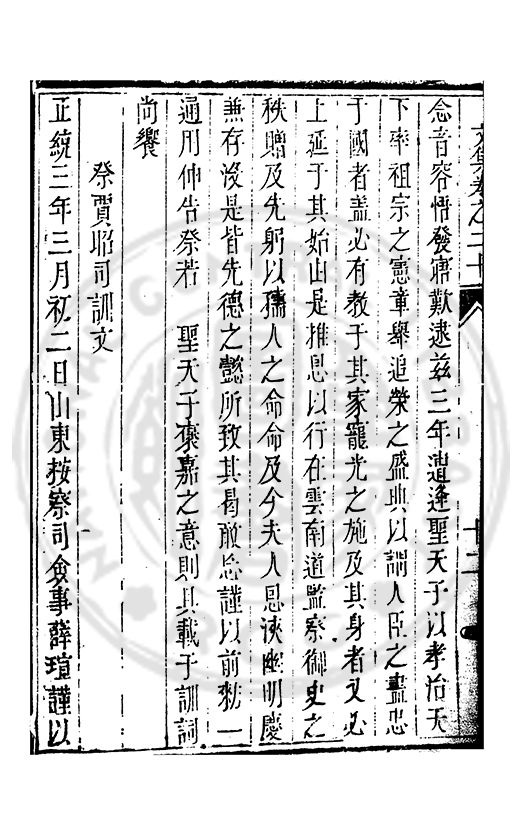 文集卷之二十
十二
念音容惜發寤歎逮兹三年遭逢聖天子以孝治天
下率祖宗之憲章舉追榮之盛典以謂人臣之盡忠
于國者盖必有教于其家寵光之施及其身者又必
上延于其始由是推恩以行在雲南道監察御史之
秩贈及先躬以孺人之命命及今夫人恩浹幽明慶
兼存没是皆先德之懿所致其曷敢忘謹以前猪一
通用伸告祭若　聖天子褒嘉之意則具載于訓詞
尚饗
祭賈昭司訓文
正統三年三月初二日山東按察司僉事薛瑄謹以